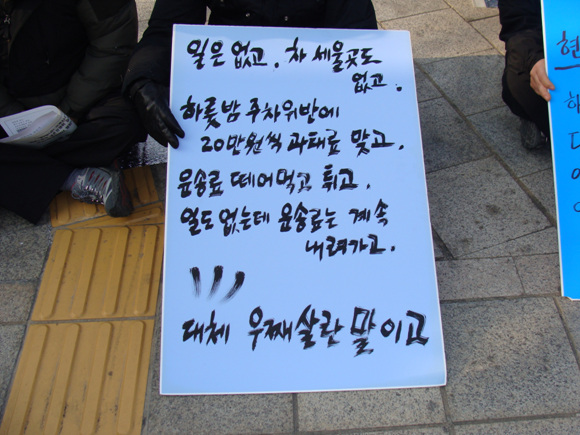 일은 없고. 차 세울곳도
없고.
하룻밤 주차위반에
20만원씩 과태료 맞고.
운송료 떼어먹고 튀고.
일도없는데 운송료는 계속
내려가고.
대체 우째살란 말이고
현
하